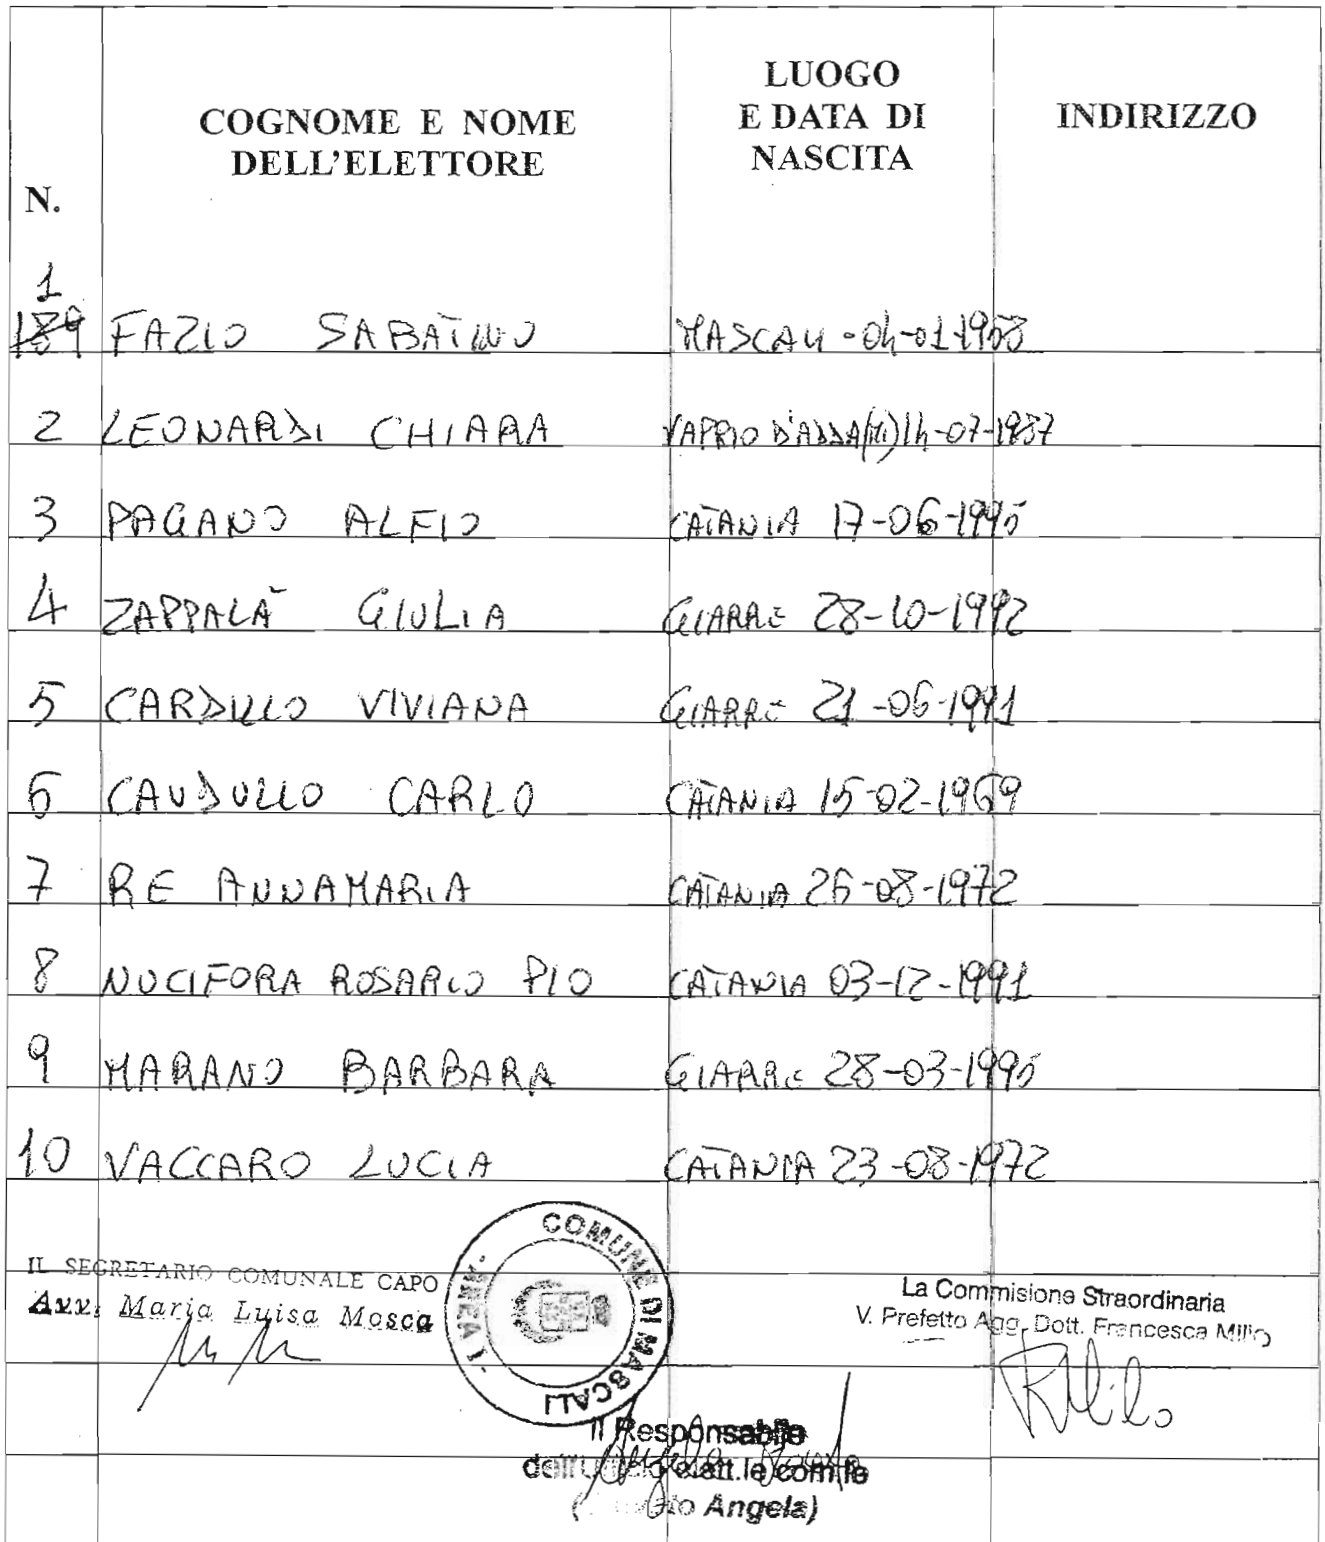 N.
COGNOME E NOME
DELL'ELETTORE
LUOGO
E DATA DI
NASCITA
INDIRIZZO
1
189 FAZIO SABATINO MASCALI -04-01-1958
2 LEONARDI CHIARA VAPRIO D'ADDA(MI) 14-07-1987
3 PAGANO ALFIO CATANIA 17-06-1995
4 ZAPPALÀ GIULIA GIARRE 28-10-1992
5 CARDILLO VIVIANA GIARRE 21-06-1991
6 CAUDULLO CARLO CATANIA 15-02-1969
7 RE ANNAMARIA CATANIA 26-08-1972
8 NUCIFORA ROSARIO PIO CATANIA 03-12-1991
9 MARANO BARBARA GIARRE 28-03-1995
10 VACCARO LUCIA CATANIA 23-08-1972
IL SEGRETARIO COMUNALE CAPO
Avv. Maria Luisa Mosca
COMUNE DI MASCALI
- AREA I -
La Commisione Straordinaria
V. Prefetto Agg. Dott. Francesca Milio
Il Responsabile
dell'Ufficio elett.le com.le
Angela)